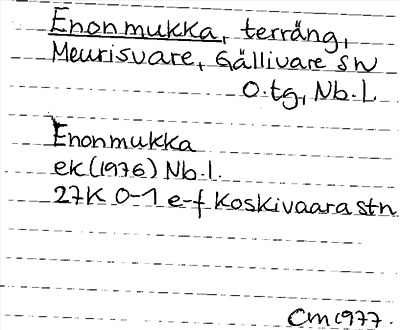 Enonmukka, terräng,
Meurisvare, Gällivare sn
O.tg, Nb.l.
Enonmukka
ek (1976) Nb.l.
27K 0-1 e-f Koskivaara stn
CM 1977.